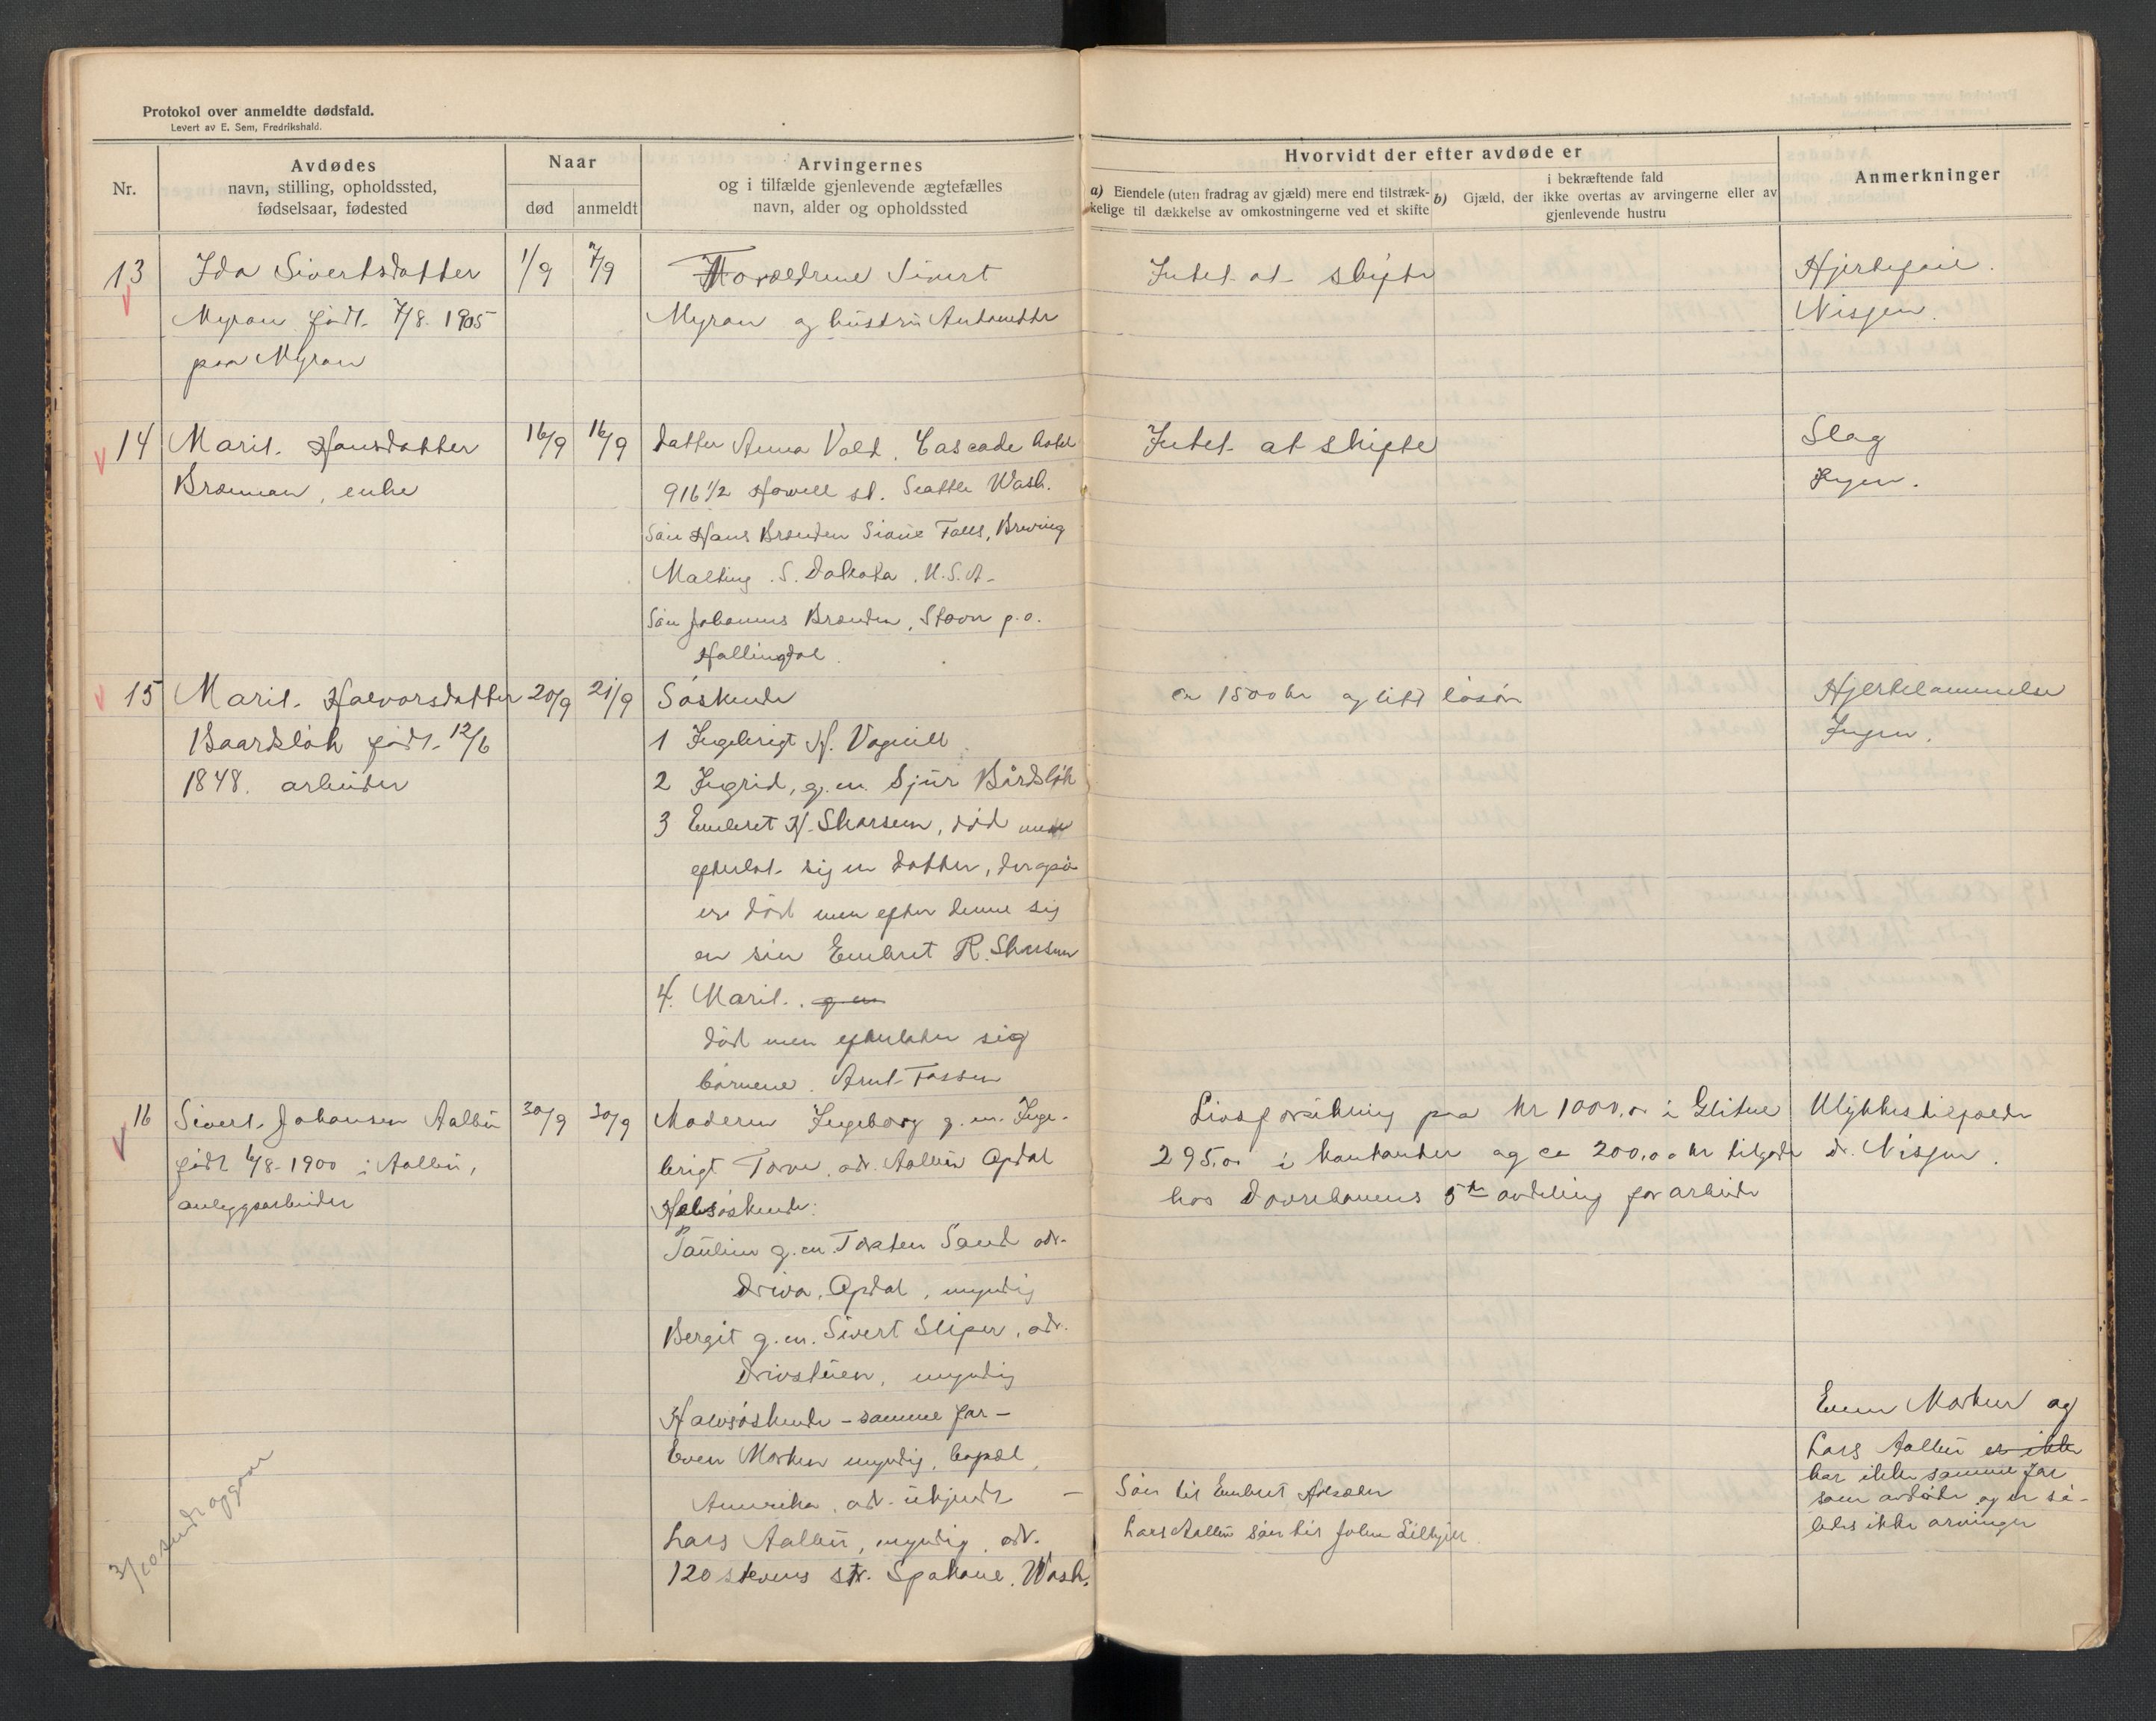 Protokol over anmeldte dødsfald.
Levert av E. Sem, Fredrikshald.
Nr.
Avdødes
navn, stilling, opholdssted,
fødselsaar, fødested
Naar
død
anmeldt
Arvingernes
og i tilfælde gjenlevende ægtefælles
navn, alder og opholdssted
Hvorvidt der efter avdøde er
a) Eiendele (uten fradrag av gjæld) mere end tilstræk-
kelige til dækkelse av omkostningerne ved et skifte
i bekræftende fald
b) Gjæld, der ikke overtas av arvingerne eller av
gjenlevende hustru
Anmerkninger
13
Ida Sivertsdatter
Myran født 7/8 1905
paa Myran
1/9
7/9
Forældrene Sivert
Myran og hustru Antonette
Intet at skifte
Hjertefeil.
Nisjen.
14
Marit Hansdatter
Brænnan, enke
16/9
16/9
datter Anna Vold, Cascade hotel
916 1/2 Howell st. Seattle Wash.
Søn Hans Brænden Sioue Falls, Brewing
Malting. S. Dakota. U.S.A.
Søn Johannes Brænden, Stavn p.o.
Hallingdal.
Intet at skifte
Slag
15
Marit Halvorsdatter
Baardsløk født 12/6
1848. arbeider
20/9
21/9
Søskende
1 Ingebrigt H. Vognill
2 Ingrid, g.m. Sjur Bårdsløk
3 Embret H. Skarsem, død men
efterlot sig en datter, der også
er død men efter denne sig
en søn Embret R. Skarsem
4. Marit. g.m.
død men efterlater sig
børnene. Arnt Fossen
ca 1500 kr og litt løsøre
Hjertelammelse
Ingen.
16
Sivert Johansen Aalbu
født 6/8-1900 i Aalbu,
anleggsarbeider
30/9
30/9
Moderen Ingeborg g.m. Inge-
brigt Torve, adr. Aalbu Opdal
Halvsøskende:
Pauline g.m. Torsten Sand adr.
Driva, Opdal, myndig
Bergit g.m. Sivert Sliper, adr.
Drivstuen, myndig
Halvsøskende - samme far -
Even Morken myndig, bopæl,
Amerika, adr. ukjendt -
Lars Aalbu, myndig, adr.
120 stevens str. Spokane. Wash.
Livsforsikring paa kr 1000,00 i Glitne
295,00 i kontanter og ca 200,00 kr tilgode
hos Dovrebanens 5te avdeling for arbeide
Søn til Embret
Lars Aalbu søn til John
Ulykkestilfælde
dr. Nisjen.
Even Morken og
Lars Aalbu er ikke
har ikke samme far
som avdøde og er så-
ledes ikke arvinger
3/10 sendt opgaar